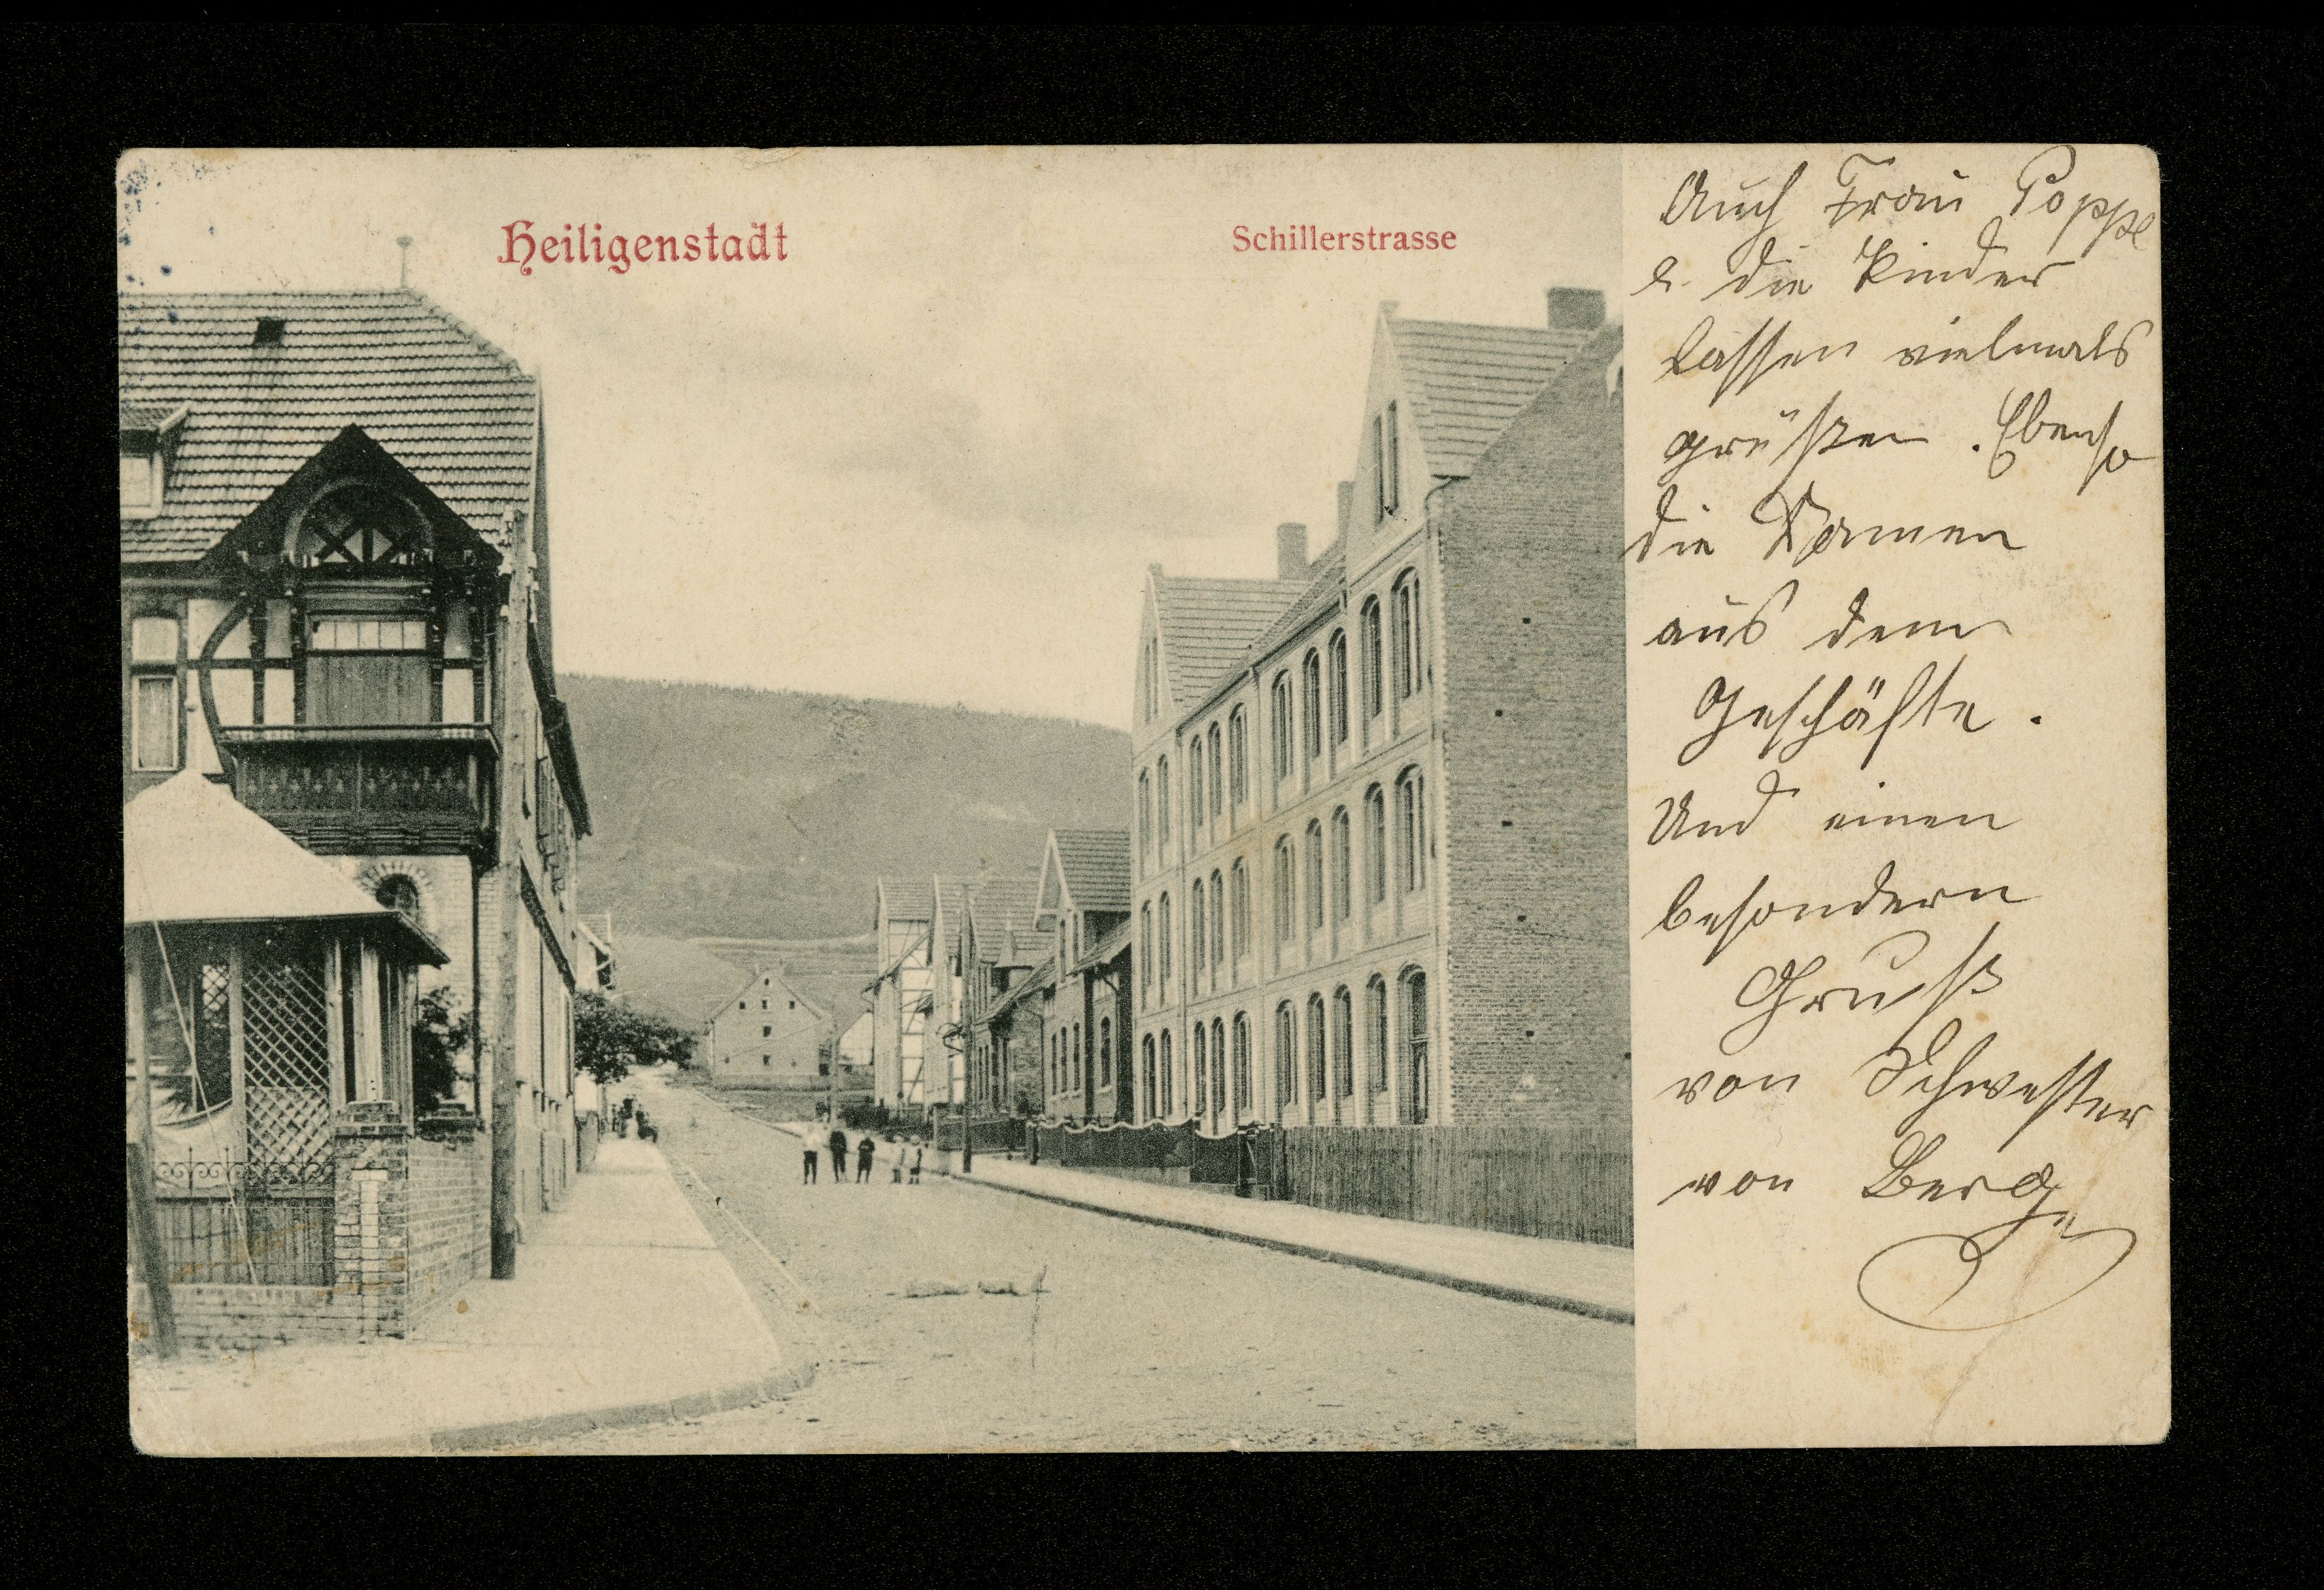 Heiligenstadt
Schillerstrasse
Auch Frau Poppe
u. die Kinder
lassen vielmals
grüßen. Ebenso
die Damen
aus dem
Geschäfte.
Und einen
besondern
Gruß
von Schwester
von Berge